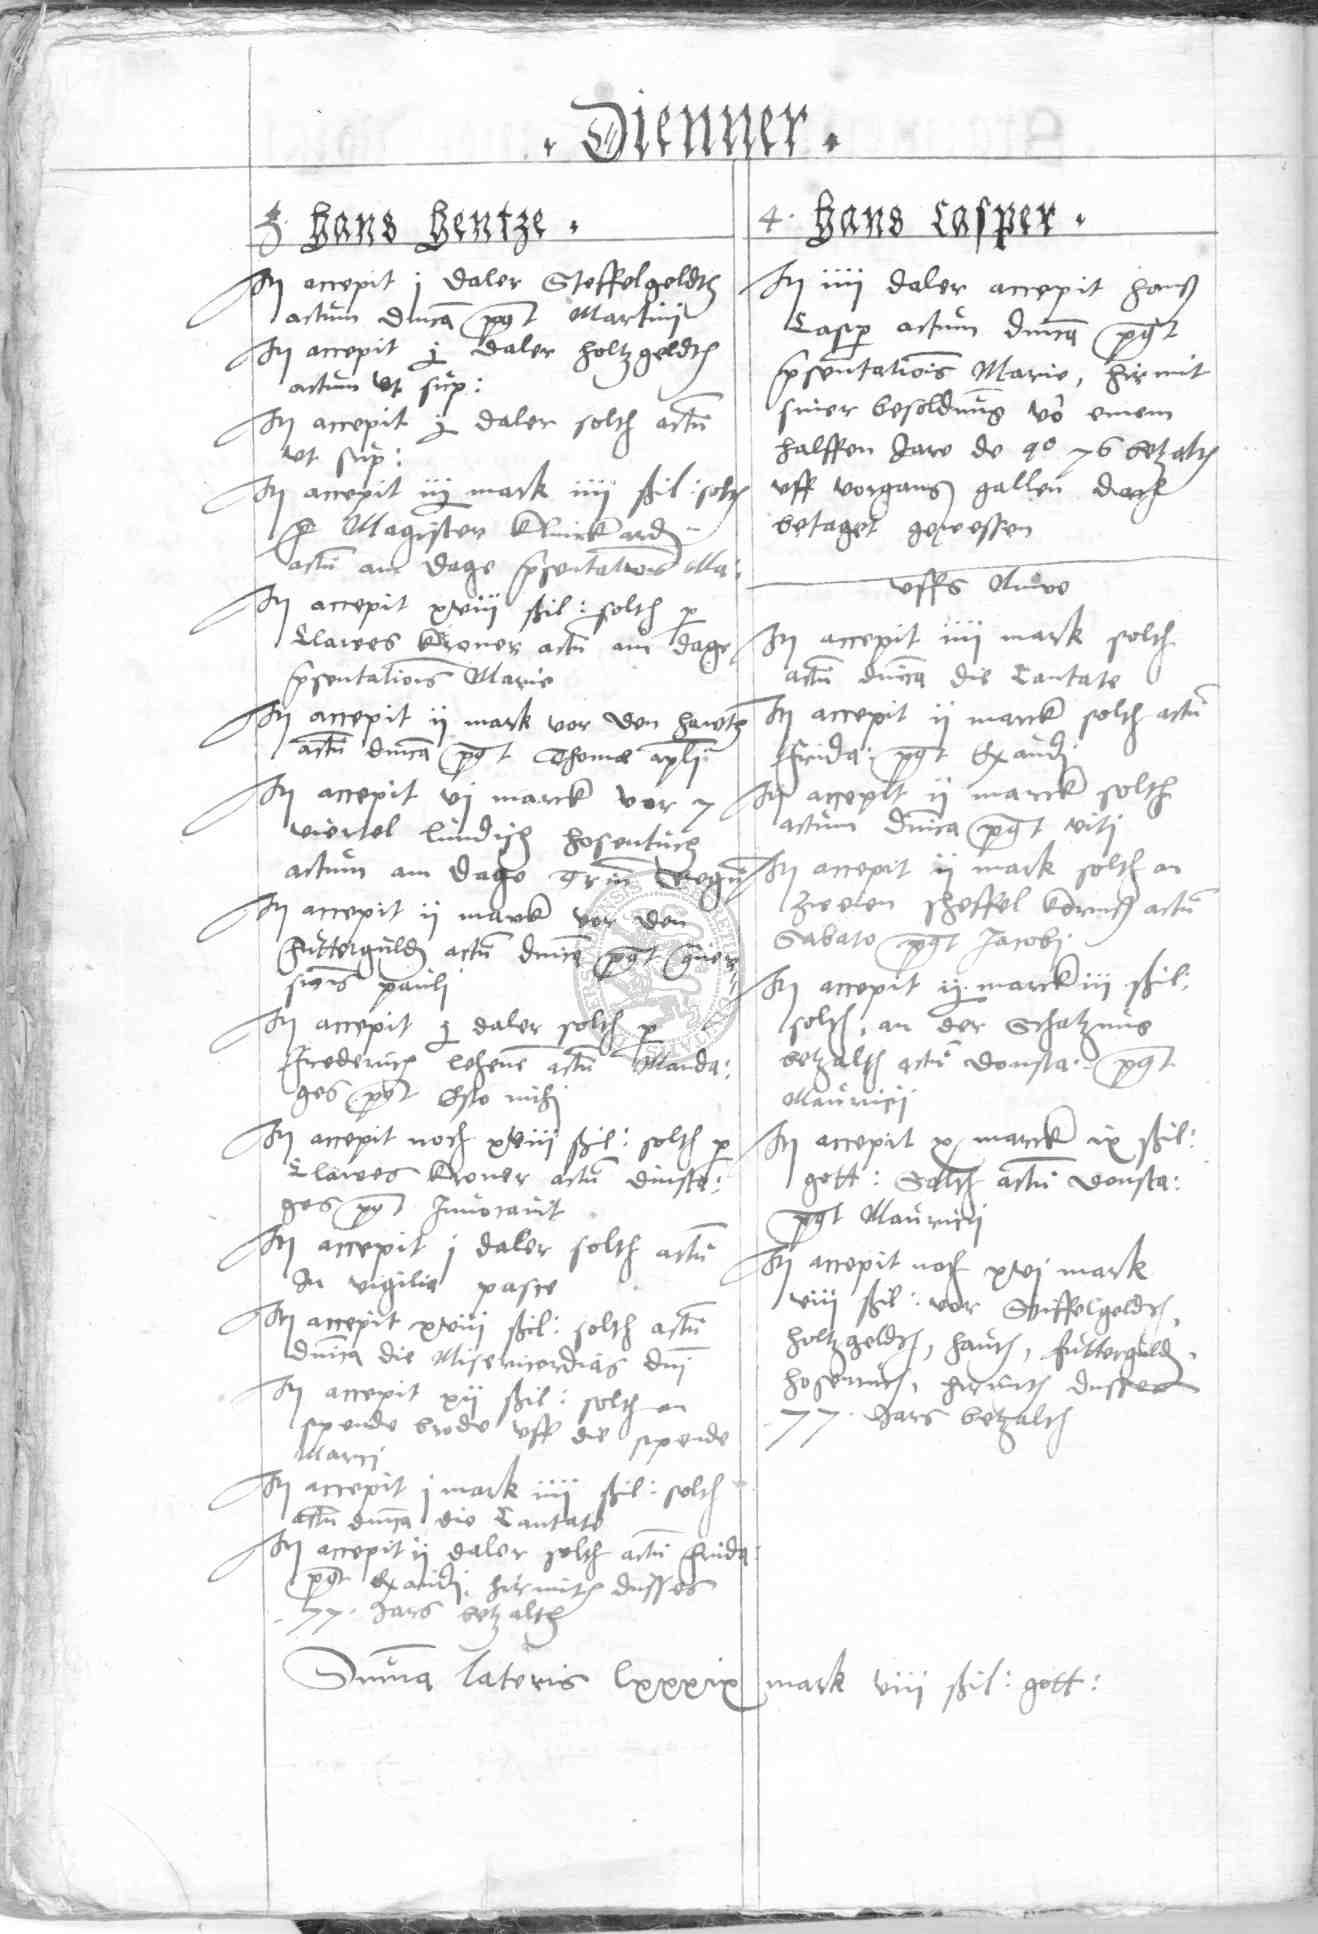 Dienner
3. Hans Hentze.
It accepit j daler Steffelgeldth
actum dnica post Martini
It accepit j daler holtzgeldth
actum ut sup:
It accepit j daler solth actu
ut sup:
It accepit iij mark iiii ßil: solth
p Magister Klinckard
actu am dage psentationis Ma:
It accepit xviii ßil: solth p
Clawes Kroner actu am dage
psentationis Marie
It accepit ii mark vor den hawth
actu dnica post Thomae apli
It accepit vi marck vor 7
viertel lundisch hosentuch
actum am dage Trium Regu
It accepit ii marck vor den
futterguld actu dnica post Conver
sionis Pauli
It accepit j daler solth p
Frederich actu Manda:
ges post Esto mihi
It accepit noch xviii ßil: solth p
Clawes Kroner actu dinsta:
ges post Invocavit
It accepit j daler solth actu
In vigilia pasce
It accepit xviii ßil: solth actu
dnica die Misericordias dni
It accepit xii ßil: solth an
spende brode uff die spende
Marci
It accepit j mark iiii ßil: solth
actu dnica die Cantate
It accepit ii daler solth actu Frida:
post Exaudi, hirmith dusses
77. Jars betzalth
4. Hans Casper.
It iiii daler accepit Hans
Casp actum dnica post
psentationis Marie, hirmit
siner besoldung vo einem
halffen Jare de ao 76 betzalth
uff vorgang gallen dach
betaget gewessen
uffs Nuwe
It accepit iiii mark solth
actu dnica die Cantate
It accepit ii marck solth actu
Frida: post Exaudi
It accepit ii marck solth
actum dnica post viti
It accepit ii mark solth an
zweien scheffel actu
Sabato post Jacobi
It accepit ij marck iii ßil:
solth, an der Schatzung
betzalth actu donsta: post
Mauricii
It accepit v marck ix ßil:
gott: Solth actu donsta:
post Mauricii
It accepit noch xvi mark
viii ßil: vor Stiffelgeldth,
holtzgeldth, hauth, futterguld,
hosentuch, hirmith dusses
77. Jars betzalth
Suma lateris lxxxix mark viii ßil: gott: